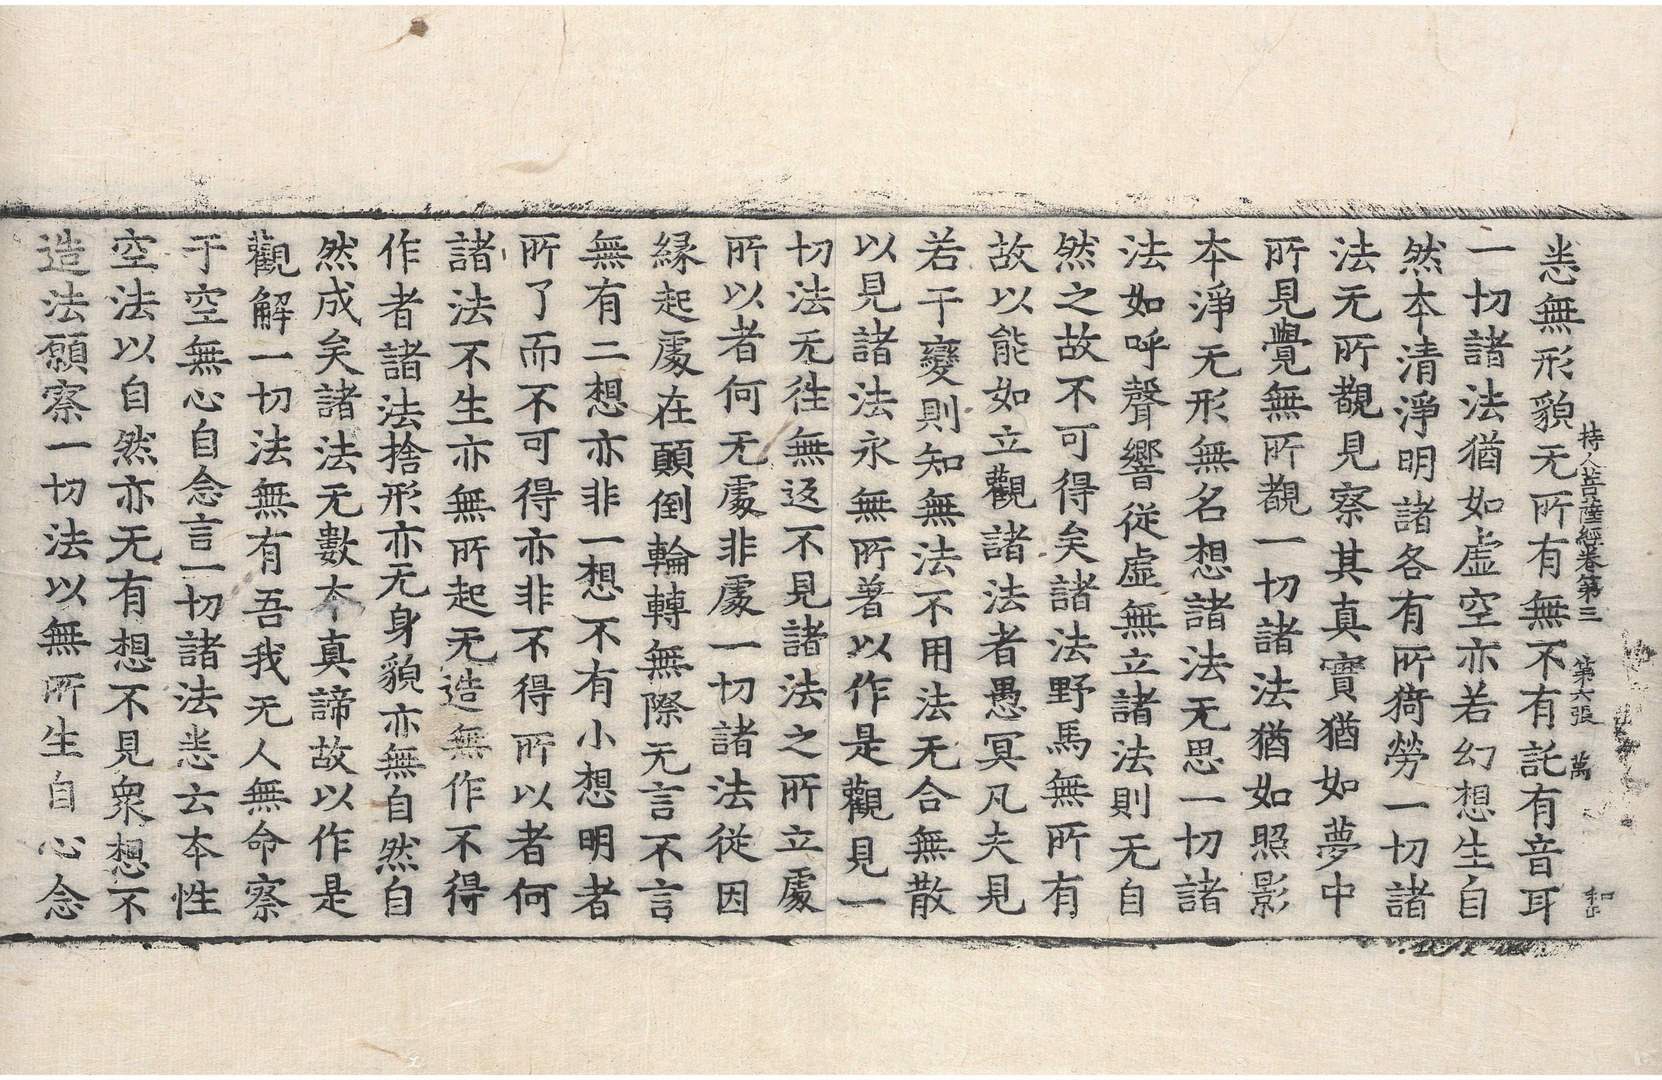 持人菩薩經卷第三 第六張 萬
恙無形貌无所有無不有託有音耳
一切諸法猶如虛空亦若幻想生自
然本清淨明諸各有所猗勞一切諸
法无所覩見察其真實猶如夢中
所見覺無所覩一切諸法猶如照影
本淨无形無名想諸法无思一切諸
法如呼聲響從虛無立諸法則无自
然之故不可得矣諸法野馬無所有
故以能如立觀諸法者愚冥凡夫見
若干變則知無法不用法无合無散
以見諸法永無所著以作是觀見一
切法无往無返不見諸法之所立處
所以者何无處非處一切諸法從因
緣起處在顚倒輪轉無際无言不言
無有二想亦非一想不有小想明者
所了而不可得亦非不得所以者何
諸法不生亦無所起无造無作不得
作者諸法捨形亦无身貌亦無自然自
然成矣諸法无數本真諦故以作是
觀解一切法無有吾我无人無命察
于空無心自念言一切諸法恙云本性
空法以自然亦无有想不見衆想不
造法願察一切法以無所生自心念